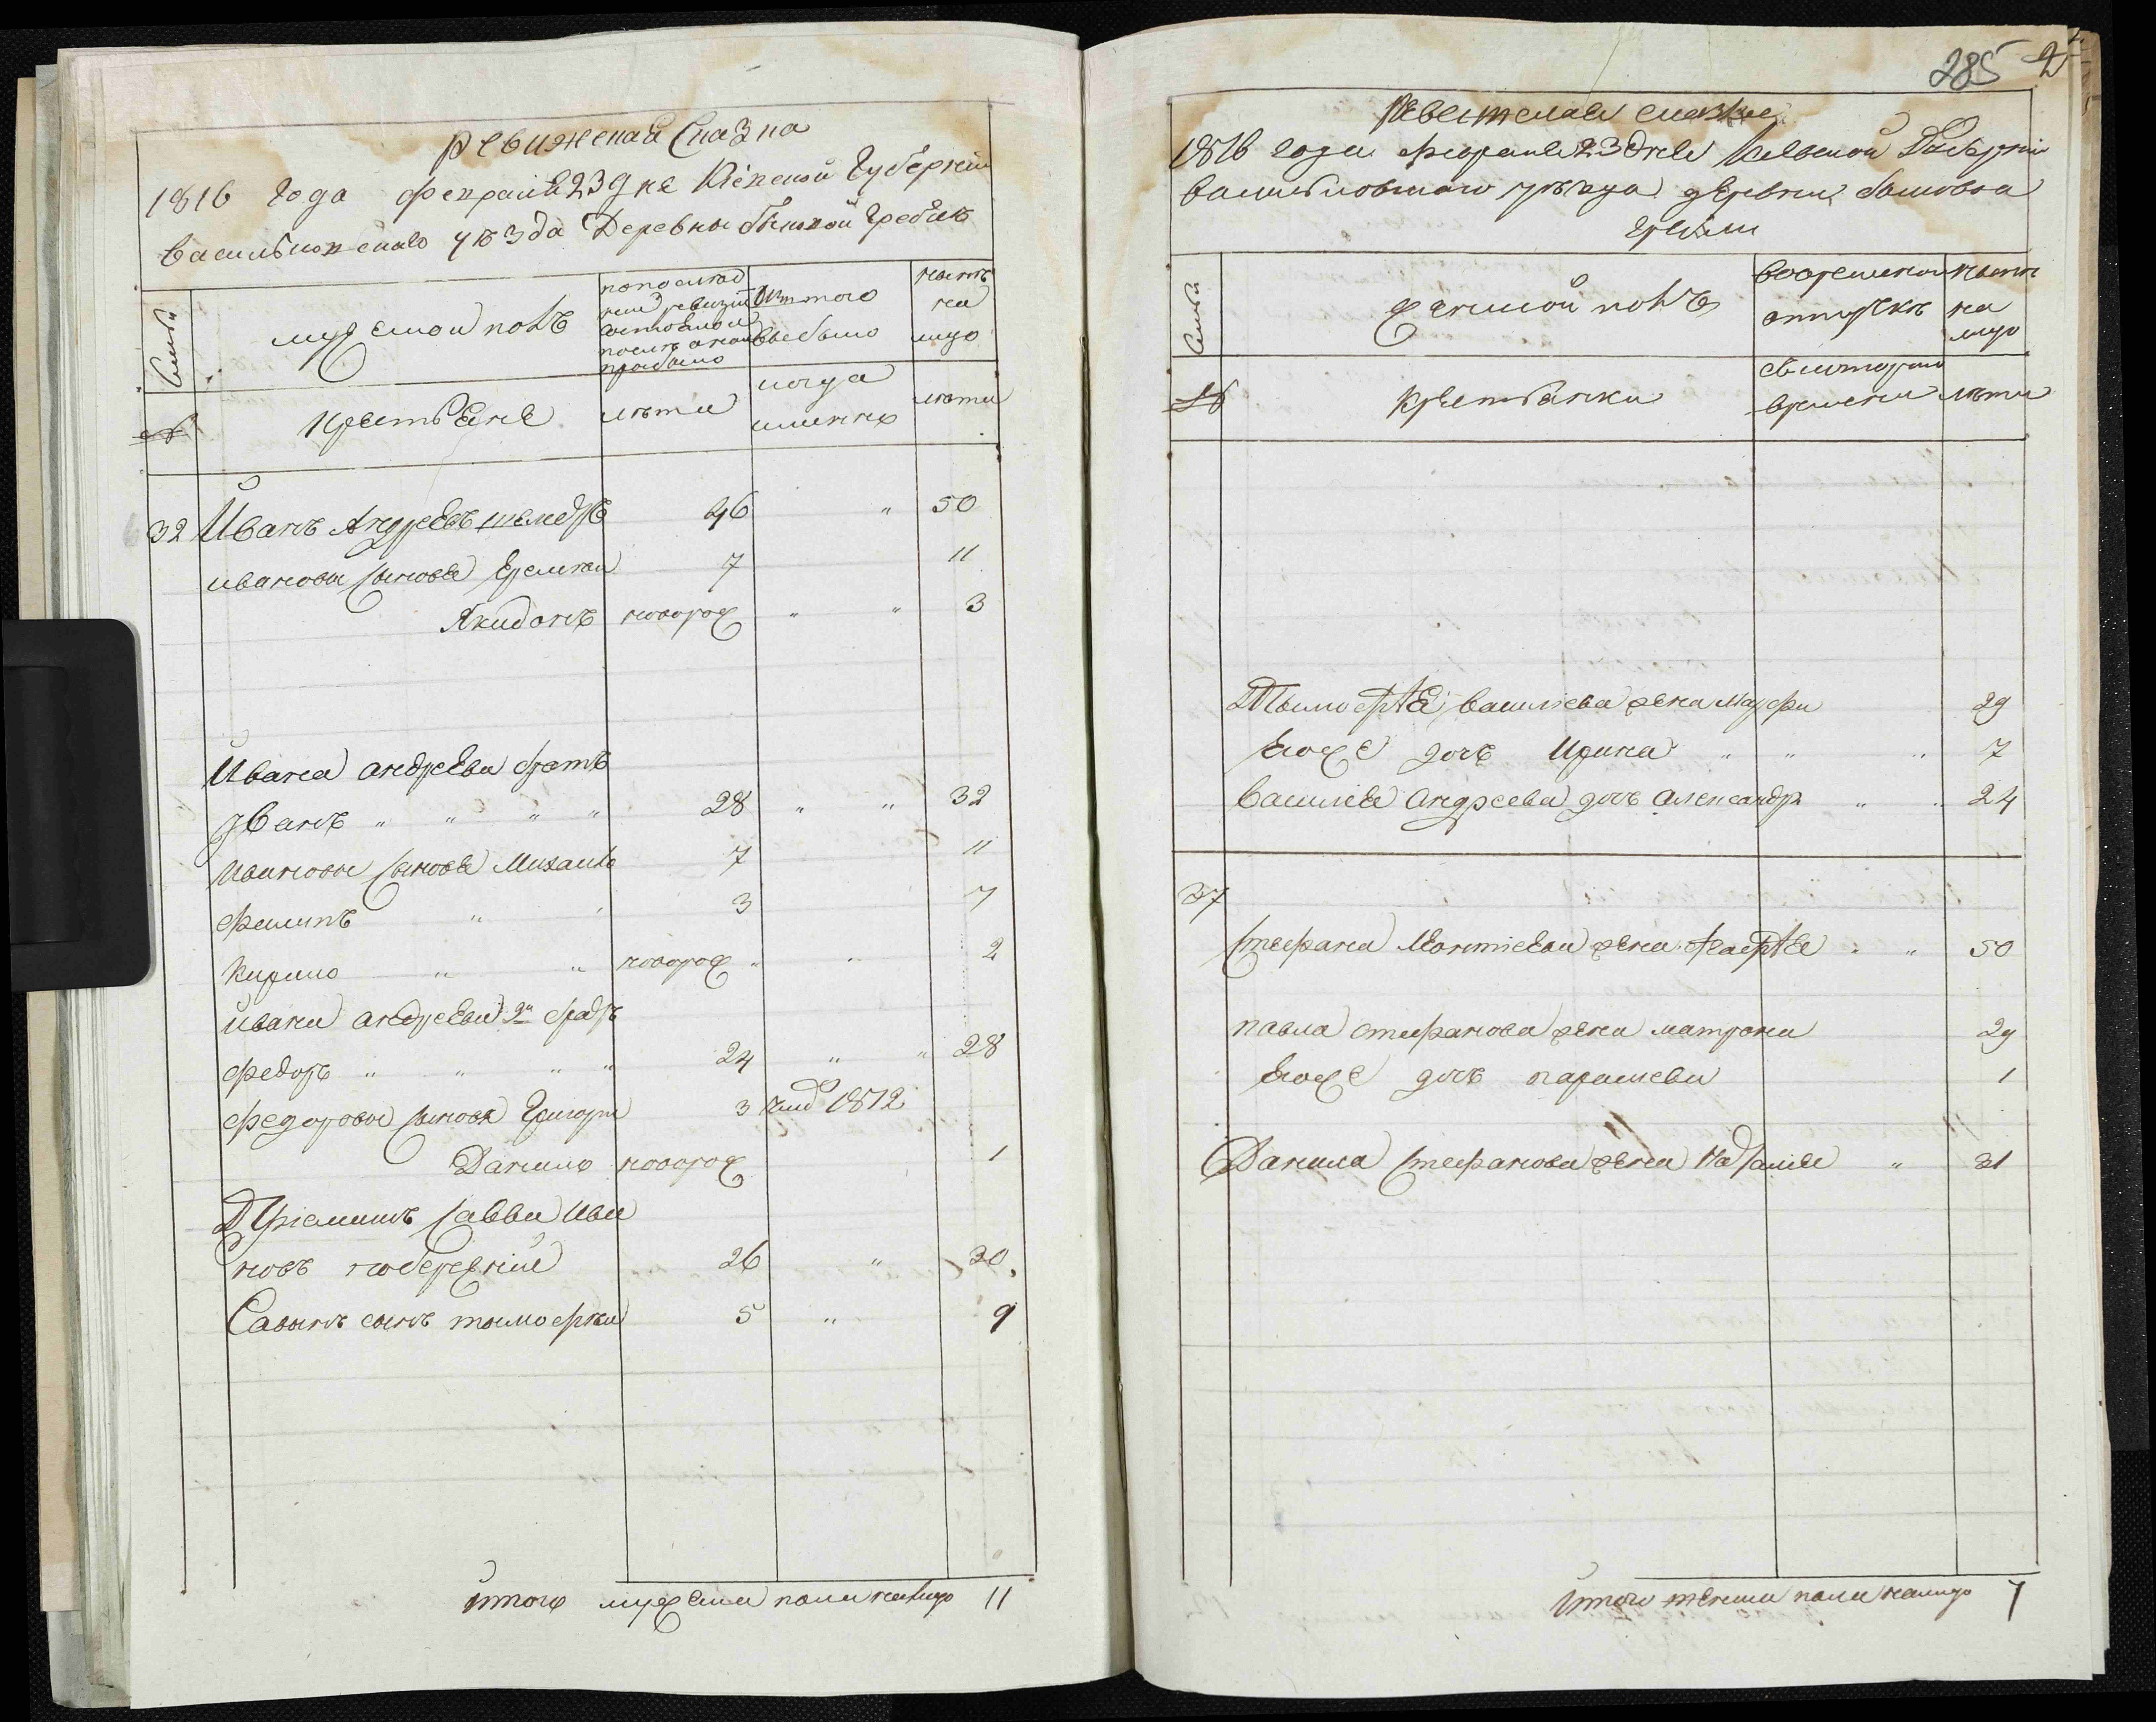 Ревижская Сказка
1816 Года Февраля 23 дня Кіевской Губерніи
Васильковскаго уѣзда Деревны Быковой Гребли
Семьи
мужескои полъ
по послед
ней ревизіи
состояло и
после оной
прибыло
Изъ того
выбыло
ныне
на
лицо
№
крестьяне
лѣта
когда
именно
лѣта
32 Иванъ Андреевъ 46 " 50
ивановы сыновья Еремка 7 11
новорож " " 3
Ивана андреева братъ
Иванъ " " " " 28 " " 32
Ивановы сыновья Михаилъ 7 11
Филипъ " " 3 7
Кирило " " новорож " " 2
ивана андреева 2й братъ
Федоръ " " " " 24 " " 28
Федоровы сыновья Григори 3 1812
Данило новорож 1
Савва Ива
новъ 26 " 30
Савынъ сынъ тымофей 5 " 9
итого мужеска пола налицо 11
285 2
Ревижская сказка
1816 года февраля 23 дня Кіевской Губерніи
васильковскаго уѣзда деревни быковой
гребли
Семьи
женской полъ
во временной
отлучкѣ
ныне
на
лицо
№
крестьянки
съ которого
времени
лѣта
Тымофея василіева жена Марфа 29
Егоже дочь Ирина " " " 7
Василія андреева дочь александра " " 24
37
Стефана Леонтіева жена " " 50
павла стефанова жена матрона 29
Егоже дочь парасковя 1
Данила Стефанова жена Наталія " 31
итого женска пола налицо 7